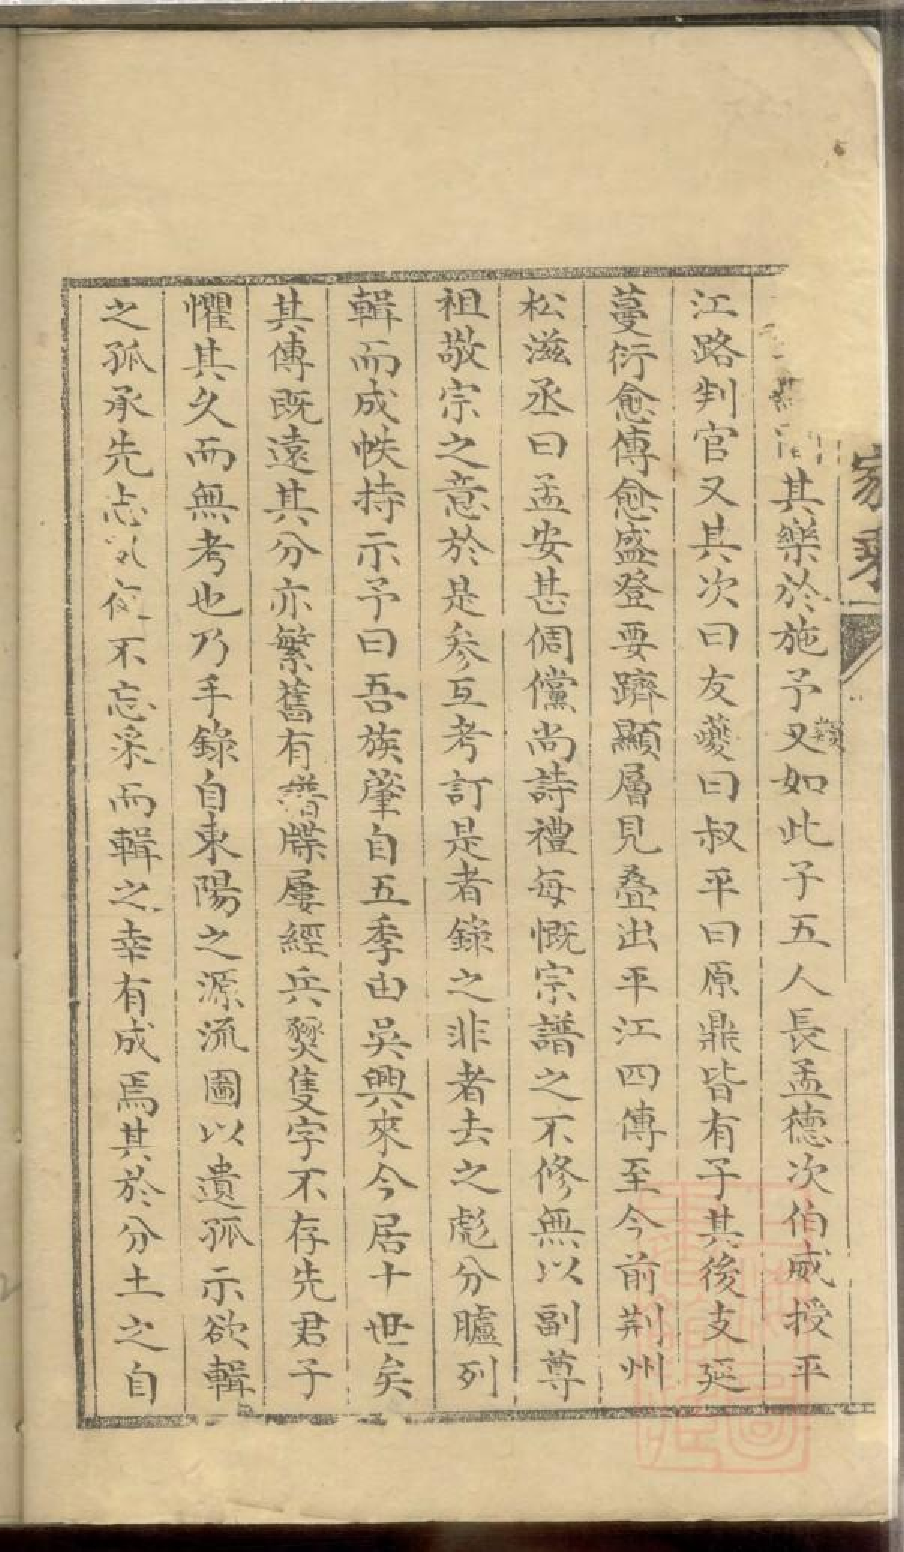 家乘
其樂於施予又如此子五人長孟德次伯威授平
江路判官又其次曰友夔曰叔平曰原鼎皆有子其後支延
蔓衍愈傳愈盛登要躋顯層見叠出平江四傳至今前荆州
松滋丞曰孟安甚倜儻尚詩禮每慨宗譜之不修無以副尊
祖敬宗之意於是參互考訂是者錄之非者去之彪分臚列
輯而成帙持示予曰吾族肇自五季由吳興來今居十世矣
其傳既遠其分亦繁舊有譜牒屢經兵燹隻字不存先君子
懼其久而無考也乃手錄自東陽之源流圖以遺孤示欲輯
之孤承先志不忘采而輯之幸有成焉其於分土之自